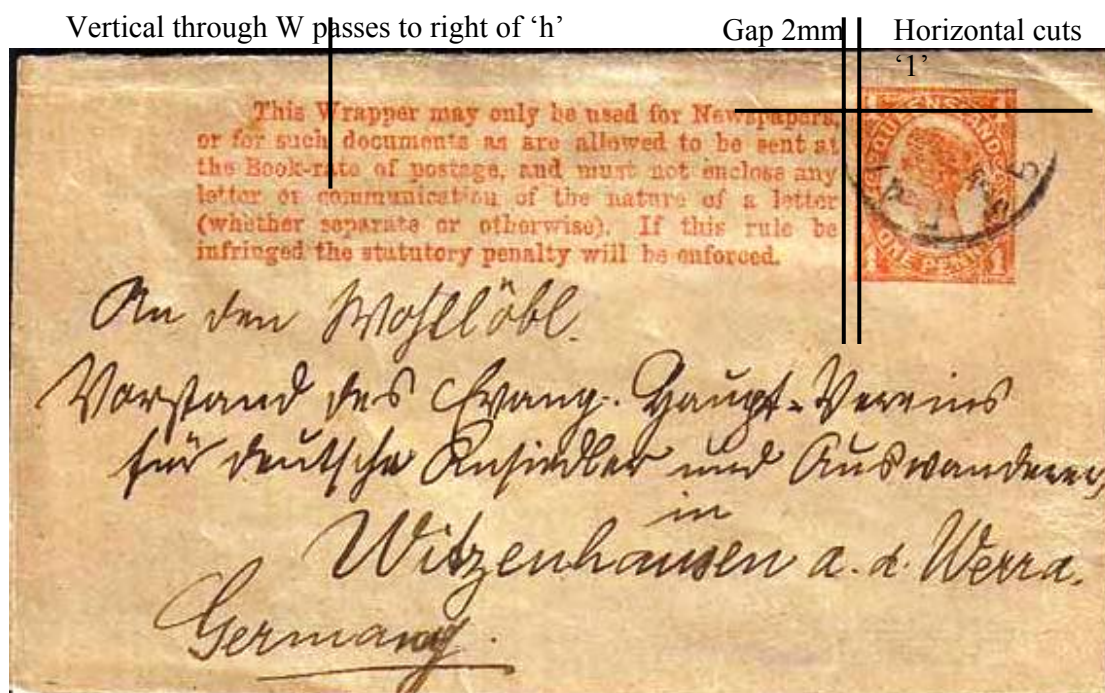 Vertical through W passes to right of ‘h’
Gap 2mm
Horizontal cuts
‘1’
This Wrapper may only be used for Newspapers,
or for such documents as are allowed to be sent at
the Book-rate of postage, and must not enclose any
letter or communication of the nature of a letter
(whether separate or otherwise). If this rule be
infringed the statutory penalty will be enforced.
QUEENSLAND
ONE PENNY
1
An den Wohllöbl.
Vorstand des Evang. Haupt-Vereins
für deutsche Ansiedler und Auswanderer,
in
Witzenhausen a. d. Werra.
Germany.